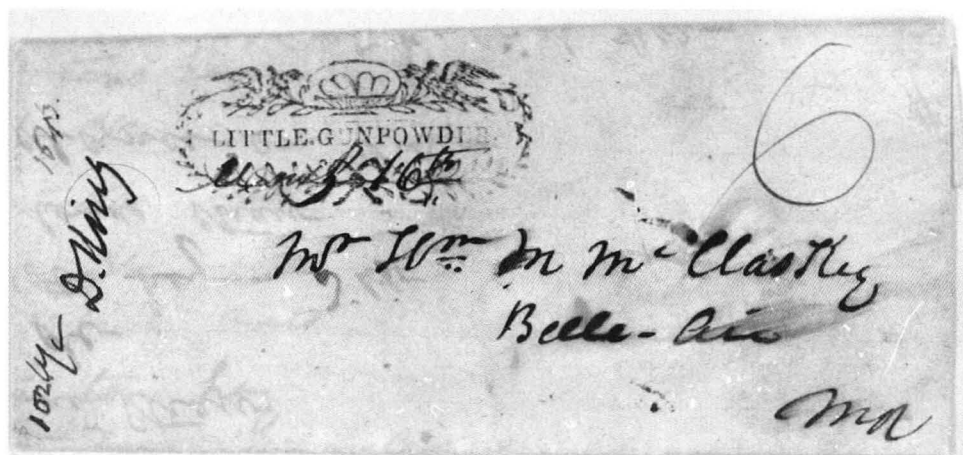 LITTLE.GUNPOWDER.
16th
6
Mr Wm M McClaskey
Belle-Air
Md
D. King